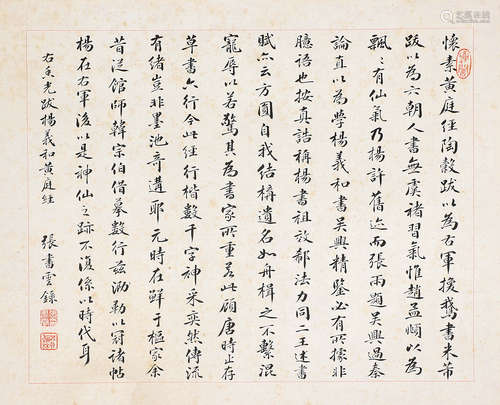 懷素黃庭經陶穀跋以為右軍換鵞書米芾
跋以為六朝人書無虞褚習氣惟趙孟頫以為
飄〻有仙氣乃楊許舊迹而張雨題吳興過秦
論直以為學楊義和書吳興精鑒必有所據非
臆語也按真誥稱楊書祖放郗法力同二王述書
賦亦云方圓自我結構遺名如舟楫之不繫混
寵辱以若驚其為書家所重若此顧唐時止存
草書六行今此經行楷數千字神采奕然傳流
有緒豈非墨池奇遘耶元時在鮮于樞家余
昔從館師韓宗伯借摹數行茲泐勒以冠諸帖
楊在右軍後以是神仙之跡不復係以時代耳
右香光跋楊義和黃庭經 張書雲錄